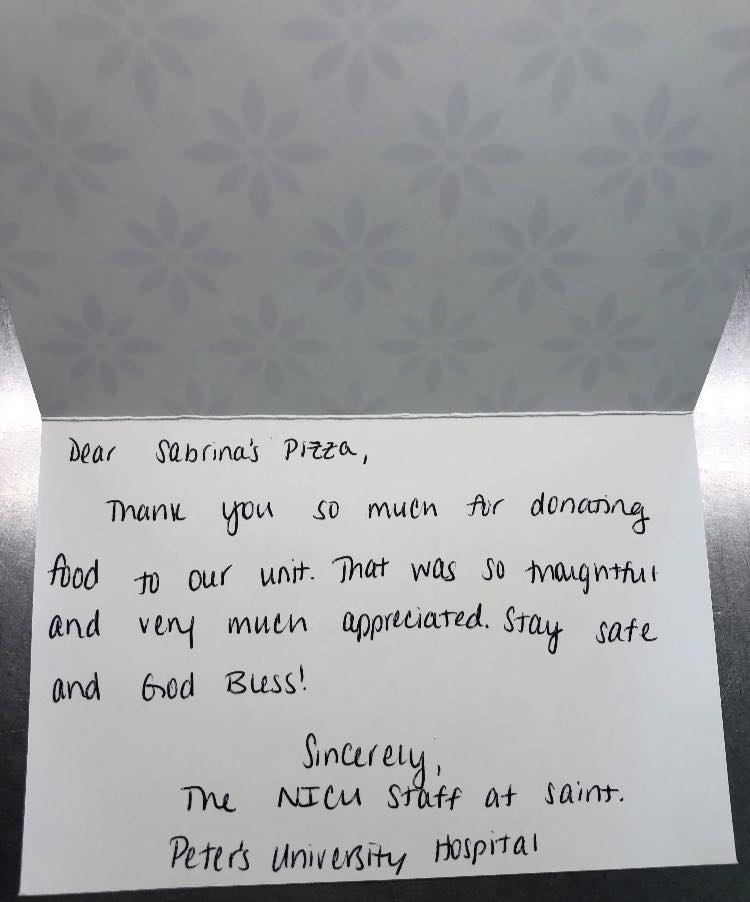 Dear Sabrina's Pizza,
Thank you so much for donating
food to our unit. That was so thoughtful
and very much appreciated. Stay safe
and God Bless!
Sincerely,
The NICU Staff at Saint.
Peter's University Hospital